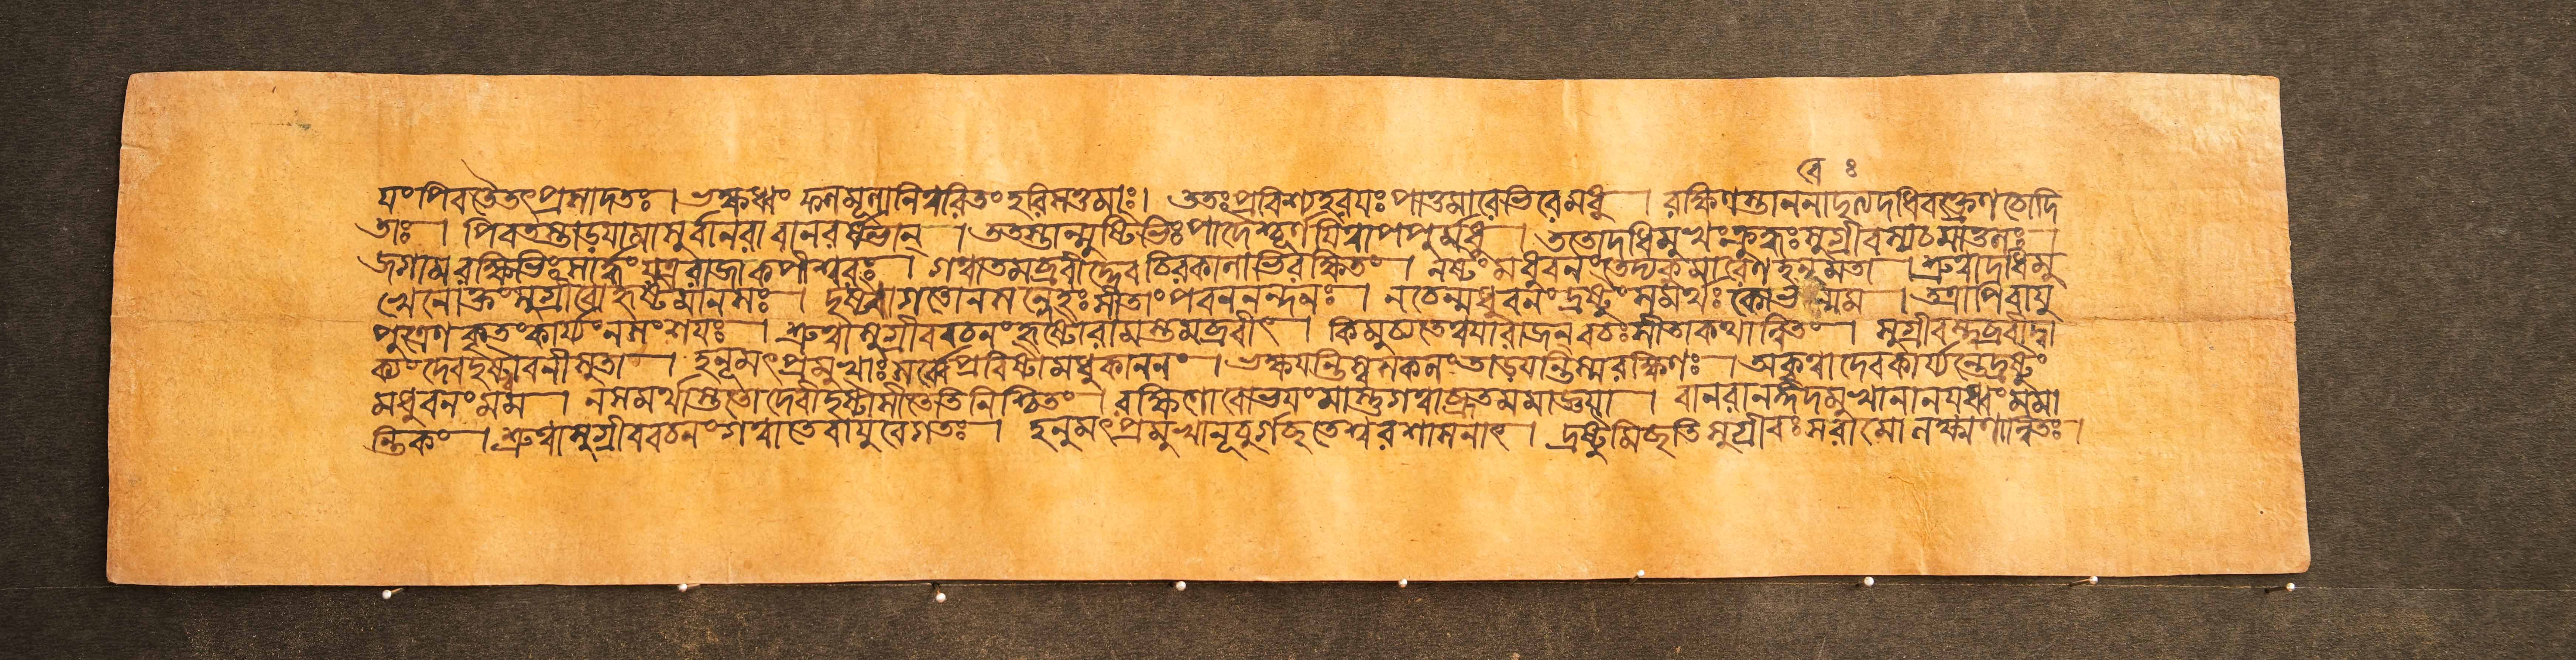 যং পিবতৈতৎপ্রসাদতঃ । ভক্ষধ্বং ফলমূলানি ত্বরিতং হরিসত্তমাঃ । ততঃ প্রবিশ্য হরয়ঃ পাতুমারেভিরে মধু । রক্ষিণস্তাননাদৃত্য দধিবক্ত্রেণ চোদি
তাঃ । পিবতস্তাড়য়ামাসুর্বানরা বানরর্ষভান্ । ততস্তান্মুষ্টিভিঃ পাদৈশ্চূর্ণয়িত্বা পপুর্মধু । ততো দধিমুখঃ ক্রুদ্ধঃ সুগ্রীবস্য চ মাতুলঃ ।
জগাম রক্ষিভিঃ সার্দ্ধং যত্র রাজা কপীশ্বরঃ । গত্বা তমব্রবীদ্দেব চিরকালাভিরক্ষিতং । নষ্টং মধুবনং তেদ্য কুমারেণ হনূমতা । শ্রুত্বা দধিমু
খেনোক্তং সুগ্রীবো হৃষ্টমানসঃ । দৃষ্ট্বাগতো ন সন্দেহঃ সীতাং পবননন্দনঃ । ন চেন্মধুবনং দ্রষ্টুং সমর্থঃ কো ন্মম । তত্রাপি বায়ু
পুত্রেণ কৃতং কার্য্যং ন সংশয়ঃ । শ্রুত্বা সুগ্রীববচনং হৃষ্টো রামস্তমব্রবীৎ । কিমুচ্যতে ত্বয়া রাজন্ বচঃ সীতাকথান্বিতং । সুগ্রীবস্ত্বব্রবীদ্বা
ক্যং দেব দৃষ্টাবনীসুতা । হনূমৎপ্রমুখাঃ সর্ব্বে প্রবিষ্টা মধুকাননং । ভক্ষয়ন্তি স্ম সকলং তাড়য়ন্তি স্ম রক্ষিণঃ । অকৃত্বা দেবকার্য্যন্তে দ্রষ্টুং
মধুবনং মম । ন সমর্থাস্ততো দেবী দৃষ্টা সীতেতি নিশ্চিতং । রক্ষিণো বো ভয়ং মাস্তু গত্বা ব্রূত মমাজ্ঞয়া । বানরানঙ্গদমুখানানয়ধ্বং মমা
ন্তিকং । শ্রুত্বা সুগ্রীববচনং গত্বা তে বায়ুবেগতঃ । হনুমৎপ্রমুখানূচুর্গচ্ছতেশ্বরশাসনাৎ । দ্রষ্টুমিচ্ছতি সুগ্রীবঃ সরামো লক্ষ্মণান্বিতঃ ।